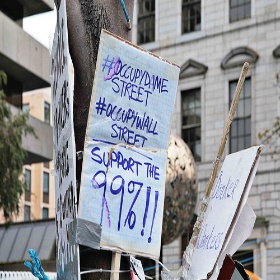 #OCCUPYDAME
STREET
#OCCUPYWALL
STREET
SUPPORT THE
99%!!